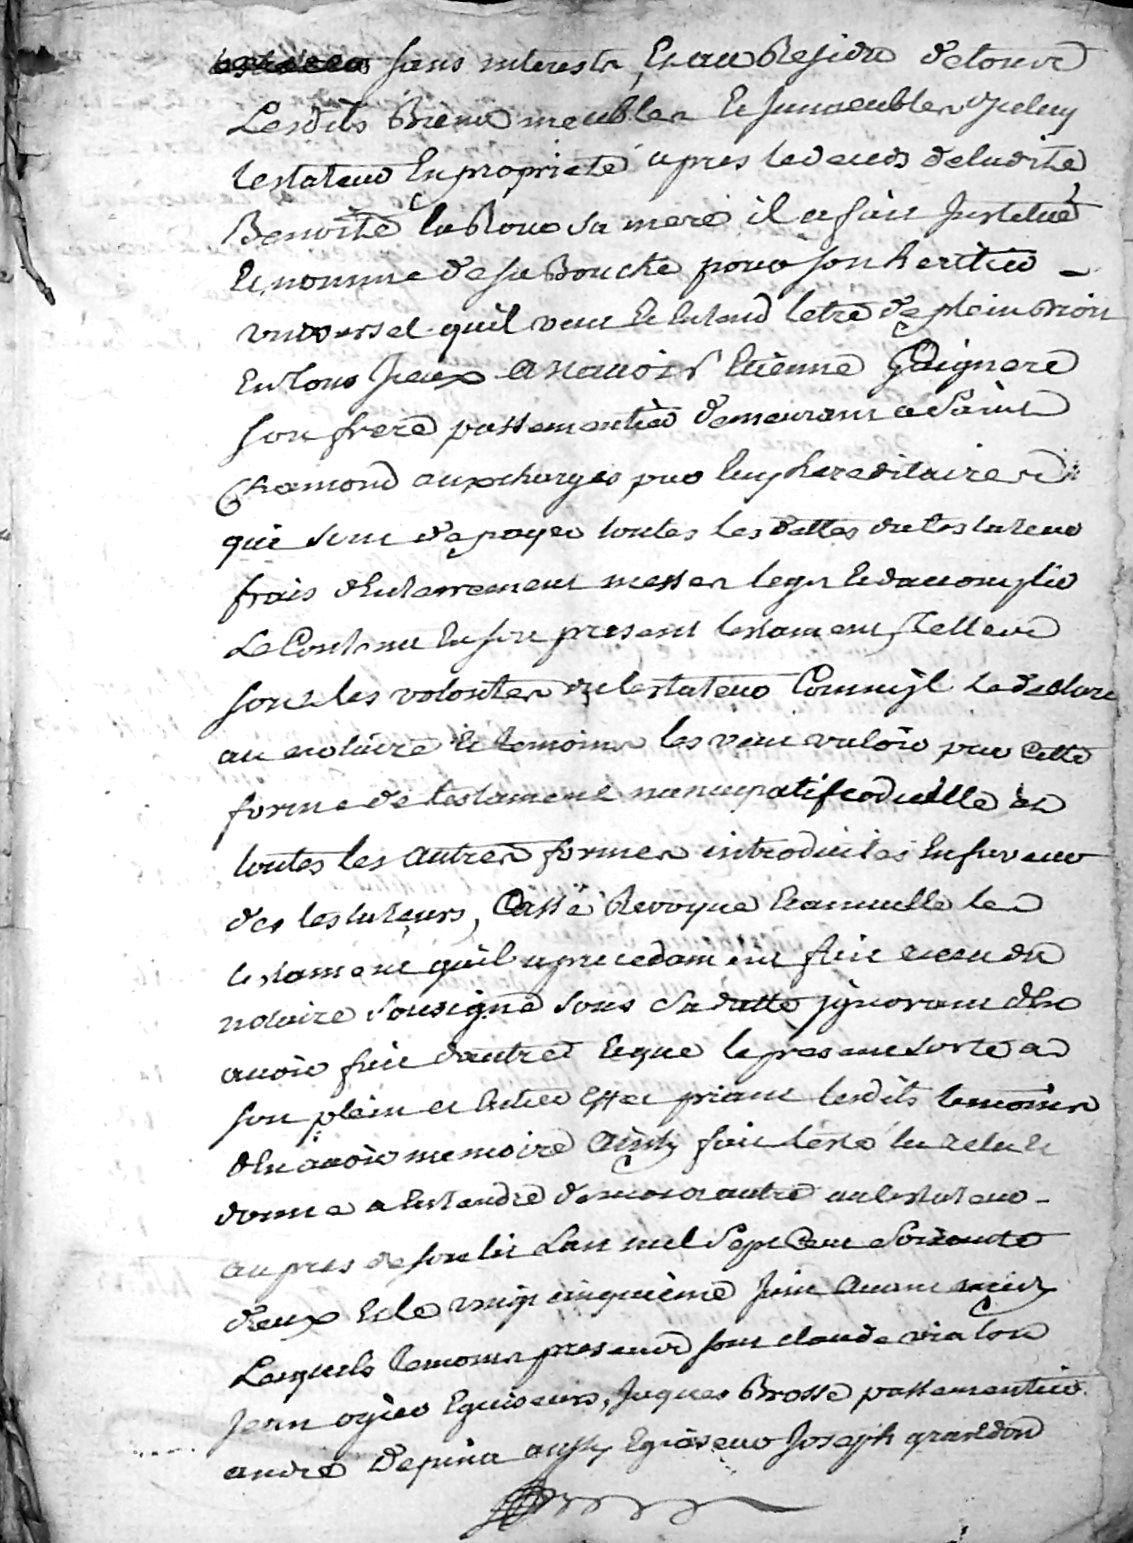 sans interests, Et au Residu de tous
Lesdits Biens meubles Et Immeubles Iceluy
testateur En propriete apres le deceds de ladite
Benoite la Roue sa mere il a fait Institué
Et nomme de sa Bouche pour son heritier
universel quil veut Et Entend letre de plein Droit
En tous Iceux Asçauoir Etienne Gaignere
son frere passementier demeurant a Saint
Chamond aux charges par luy hereditaires
qui sont de payer toutes les dettes du testateur
frais dEnterrement messes legs Et daccomplir
Le Contenu En son present testament, telles
sont les volontes du testateur Comm'jl la declare
au notaire Et temoins les veut valoir par cette
forme de testament nuncupatif codicille Et
toutes les autres formes introduites En faveur
des testateurs, Casse Revoque Et annulle les
testament quil a precedament fait receu du
notaire Sousigné sous sa datte jgnorant dEn
avoir fait dautres Et que le present sorte a
son plein et Entier Effet priant lesdits temoins
dEn avoir memoire Ainsy fait testé lu relu Et
donne a Entendre de mot a autre au testateur
aupres de son lit Lan mil Sept Cent Soixante
deux Et le vingt cinquième Juin avant midy
Lesquels temoins presents sont claude vialon
Jean ogier Eguiseurs, Jaques Brosse passementier
andré Depina aussy Eguiseur Joseph grandon